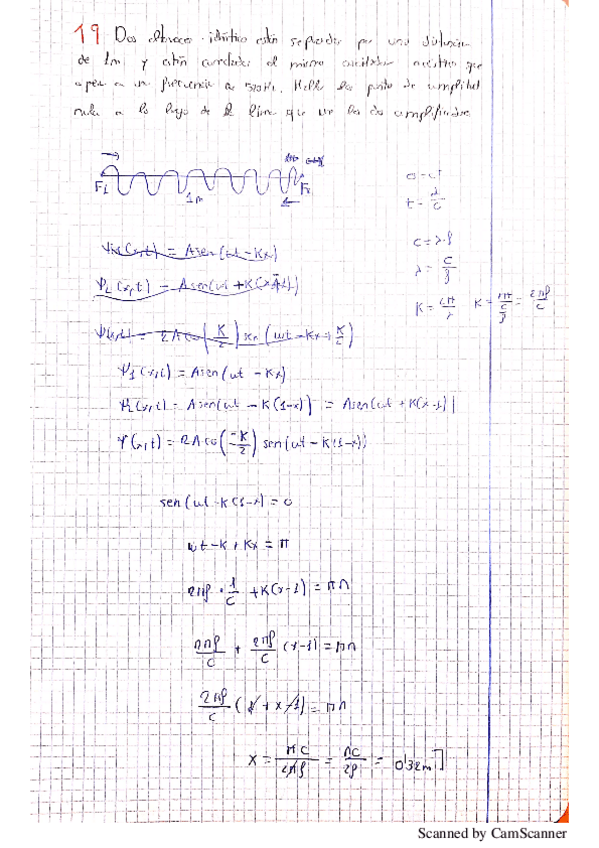 19 Dos altavoces idénticos están separados por una distancia
de 1m y están conectados al mismo oscilador acústico que
opera a una frecuencia de Halle los puntos de amplitud
nula a lo largo de la línea que une los dos amplificadores
F1 1m F2
t = λ/C
C = λ·f
λ = C/f
K = 2π/λ K = 2π/(C/f) = 2πf/C
(x,t) = A sen(wt - Kx)
Ψ2(x,t) = A sen(wt + K(
Ψ(x,t) = 2A cos(K/2) sen(wt - Kx + K/2)
Ψ1(x,t) = A sen(wt - Kx)
Ψ2(x,t) = A sen(wt - K(1-x)) = A sen(wt + K(x-1))
Ψ(x,t) = 2A cos(-K/2) sen(wt - K(1-x))
sen(wt - K(1-x)) = 0
wt - K + Kx = π
2πf · 1/C + K(x-1) = πn
2πf/C + 2πf/C (x-1) = πn
2πf/C (1 + x - 1) = πn
x = πC/2πf = nC/2f = 0'32m
Scanned by CamScanner